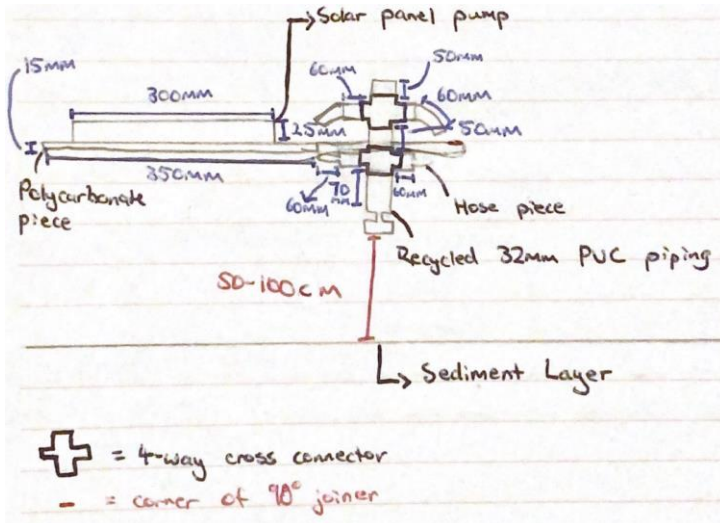 Solar panel pump
15mm
50mm
60mm
60mm
300mm
25mm
50mm
350mm
60mm
70
mm
60mm
Polycarbonate
piece
Hose piece
Recycled 32mm PVC piping
50-100cm
Sediment Layer
= 4-way cross connector
- = corner of 90° joiner